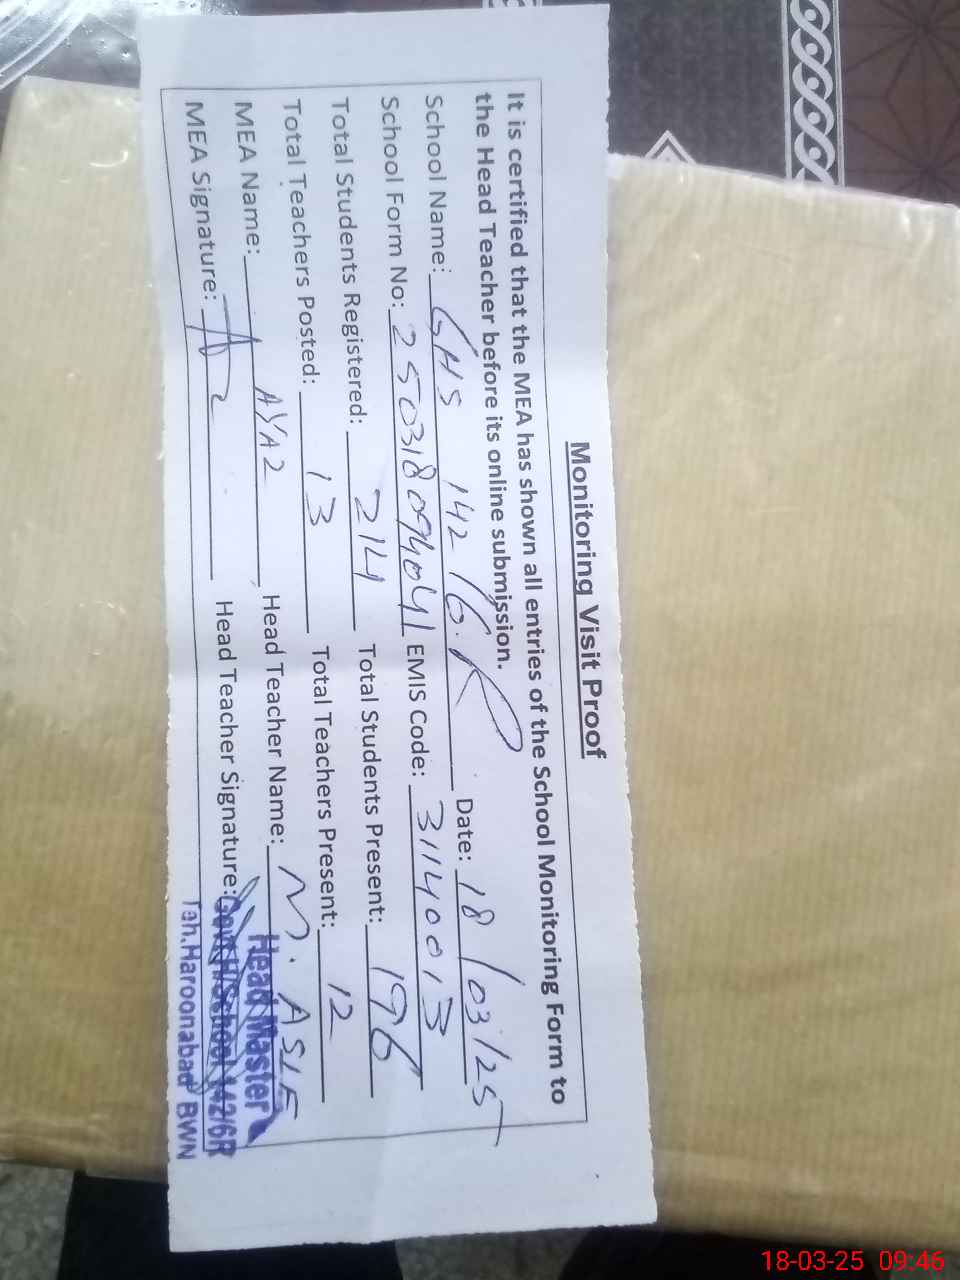 Monitoring Visit Proof
It is certified that the MEA has shown all entries of the School Monitoring Form to
the Head Teacher before its online submission.
School Name: GHS 142/6.R Date: 18/03/25
School Form No: 25031809404 1 EMIS Code: 31140013
Total Students Registered: 214 Total Students Present: 196
Total Teachers Posted: 13 Total Teachers Present: 12
MEA Name: AYAZ Head Teacher Name: M. ASIF
MEA Signature: Head Teacher Signature:
Head Master
Govt.H/School 142/6R
Teh.Haroonabad BWN
18-03-25 09:46